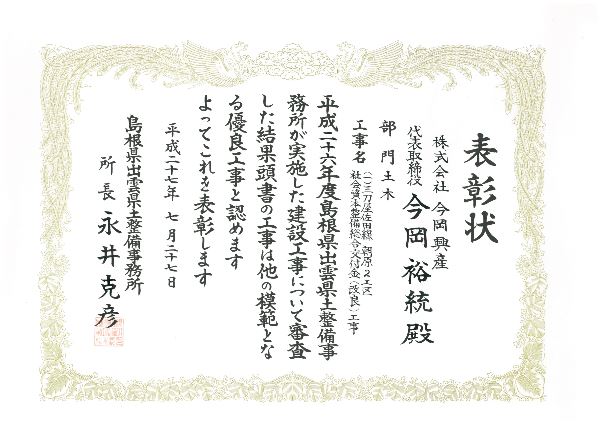 表彰状
株式会社 今岡興産
代表取締役 今岡裕統殿
部門 土木
工事名 (一)三刀屋佐田線 朝原2工区
社会資本整備総合交付金(改良)工事
平成二十六年度島根県出雲県土整備事
務所が実施した建設工事について審査
した結果頭書の工事は他の模範とな
る優良工事と認めます
よってこれを表彰します
平成二十七年 七月二十七日
島根県出雲県土整備事務所
所長 永井克彦